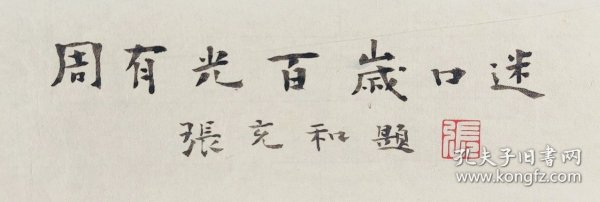 周有光百歲口述
張充和題
張
孔夫子旧书网
www.kongfz.com